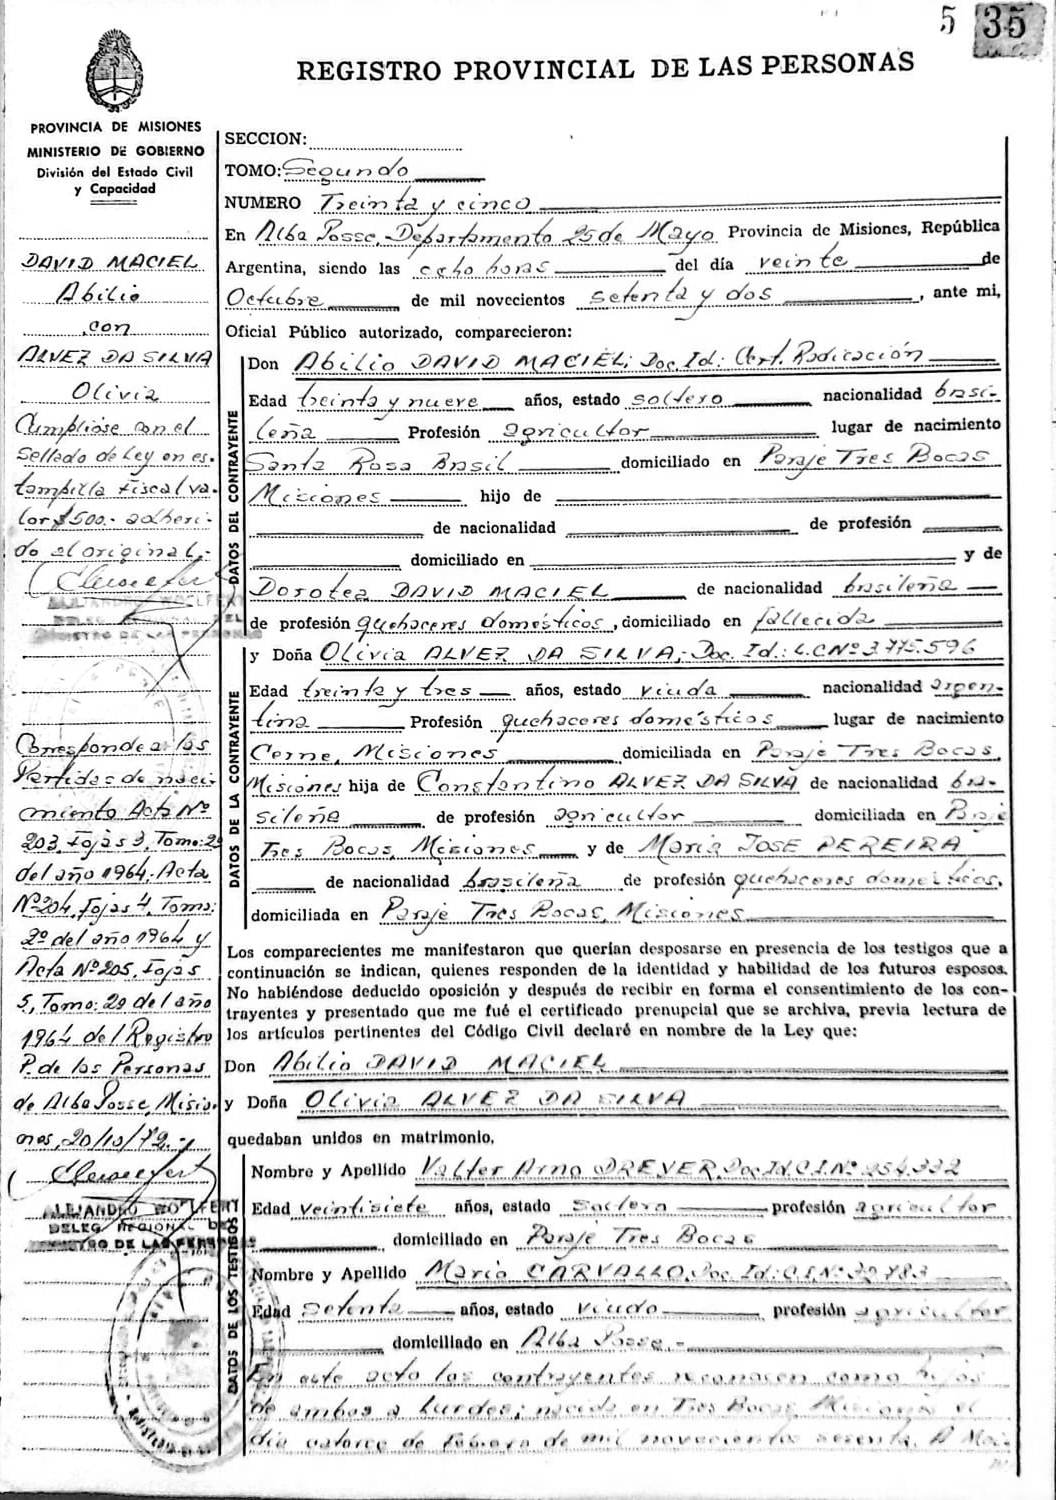 5 35
REGISTRO PROVINCIAL DE LAS PERSONAS
PROVINCIA DE MISIONES
MINISTERIO DE GOBIERNO
División del Estado Civil
y Capacidad
DAVID MACIEL
Abilio
con
ALVEZ DA SILVA
Olivia
Cumplióse con el
Sellado de Ley en es-
tampilla Fiscal va-
lor $500.- adheri-
do al original.-
ALEJANDRO WOELFERT
DELEG. REGIONAL DEL
REGISTRO DE LAS PERSONAS
Corresponde a las
Partidas de naci-
miento Acta Nº
203, Fojas 3, Tomo: 2º
del año 1964. Acta
Nº 204, Fojas 4, Tomo:
2º del año 1964 y
Acta Nº 205, Fojas
5, Tomo: 2º del año
1964 del Registro
P. de las Personas
de Alba Posse, Misio-
nes, 20/10/72.-
ALEJANDRO WOELFERT
DELEG. REGIONAL DEL
REGISTRO DE LAS PERSONAS
SECCION:
TOMO: Segundo
NUMERO Treinta y cinco
En Alba Posse, Departamento 25 de Mayo Provincia de Misiones, República
Argentina, siendo las ocho horas del día veinte de
Octubre de mil novecientos setenta y dos, ante mi,
Oficial Público autorizado, comparecieron:
DATOS DEL CONTRAYENTE
Don Abilio DAVID MACIEL; Doc. Id: Cert. Radicación
Edad treinta y nueve años, estado soltero nacionalidad brasi-
leña Profesión agricultor lugar de nacimiento
Santa Rosa Brasil domiciliado en Paraje Tres Bocas
Misiones hijo de
de nacionalidad de profesión
domiciliado en y de
Dorotea DAVID MACIEL de nacionalidad brasileña
de profesión quehaceres domésticos, domiciliado en fallecida
DATOS DE LA CONTRAYENTE
y Doña Olivia ALVEZ DA SILVA; Doc. Id.: L.C Nº 3.775.596
Edad treinta y tres años, estado viuda nacionalidad argen-
tina Profesión quehaceres domésticos lugar de nacimiento
Cerne, Misiones domiciliada en Paraje Tres Bocas,
Misiones hija de Constantino ALVEZ DA SILVA de nacionalidad bra-
sileña de profesión agricultor domiciliada en Praje
Tres Bocas, Misiones y de Maria JOSE PEREIRA
de nacionalidad brasileña de profesión quehaceres domésticos,
domiciliada en Paraje Tres Bocas, Misiones
Los comparecientes me manifestaron que querían desposarse en presencia de los testigos que a
continuación se indican, quienes responden de la identidad y habilidad de los futuros esposos.
No habiéndose deducido oposición y después de recibir en forma el consentimiento de los con-
trayentes y presentado que me fué el certificado prenupcial que se archiva, previa lectura de
los artículos pertinentes del Código Civil declaré en nombre de la Ley que:
Don Abilio DAVID MACIEL
y Doña Olivia ALVEZ DA SILVA
quedaban unidos en matrimonio,
DATOS DE LOS TESTIGOS
Nombre y Apellido Valter Arno DREYER, Doc. Id. C.I. Nº 254.332
Edad veintisiete años, estado soltero profesión agricultor
domiciliado en Paraje Tres Bocas
Nombre y Apellido Mario CARVALLO, Doc. Id: C.I. Nº 32.783
Edad setenta años, estado viudo profesión agricultor
domiciliado en Alba Posse.-
En este acto los contrayentes reconocen como hijos
de ambos a Lurdes; nacida en Tres Bocas Misiones el
día catorce de Febrero de mil novecientos sesenta, A